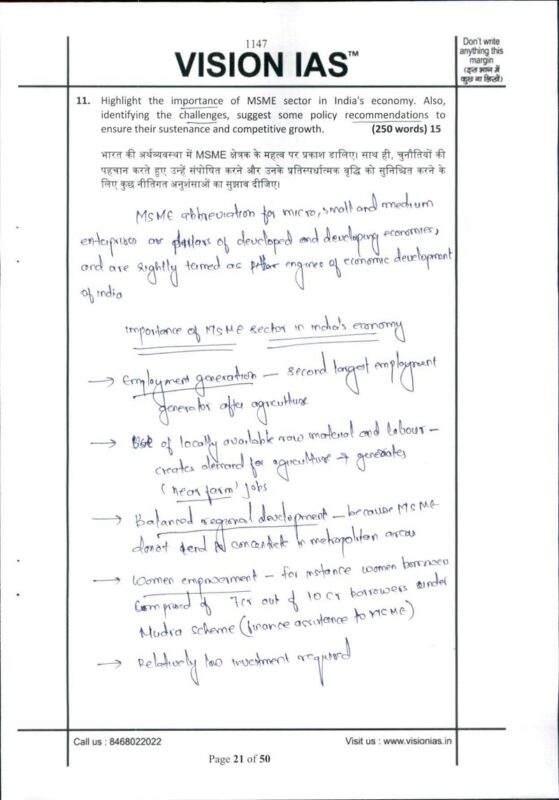 1147
VISION IAS™
Don't write
anything this
margin
(इस भाग में
कुछ ना लिखें)
11. Highlight the importance of MSME sector in India's economy. Also,
identifying the challenges, suggest some policy recommendations to
ensure their sustenance and competitive growth. (250 words) 15
भारत की अर्थव्यवस्था में MSME क्षेत्रक के महत्व पर प्रकाश डालिए। साथ ही, चुनौतियों की
पहचान करते हुए उन्हें संपोषित करने और उनके प्रतिस्पर्धात्मक वृद्धि को सुनिश्चित करने के
लिए कुछ नीतिगत अनुशंसाओं का सुझाव दीजिए।
MSME abbreviation for micro, small and medium
enterprises are pillars of developed and developing economies,
and are rightly termed as engines of economic development
of India
Importance of MSME sector in India's economy
→ Employment generation – second largest employment
generator after agriculture
→ Use of locally available raw material and labour –
creates demand for agriculture → generates
'near farm' jobs
→ Balanced regional development – because MSME
donot tend to concentrate in metropolitan areas
→ Women empowerment – for instance women borrowers
comprised of 7cr out of 10 cr borrowers under
Mudra scheme (finance assistance to MSME)
→ Relatively low investment required
Call us : 8468022022
Visit us : www.visionias.in
Page 21 of 50